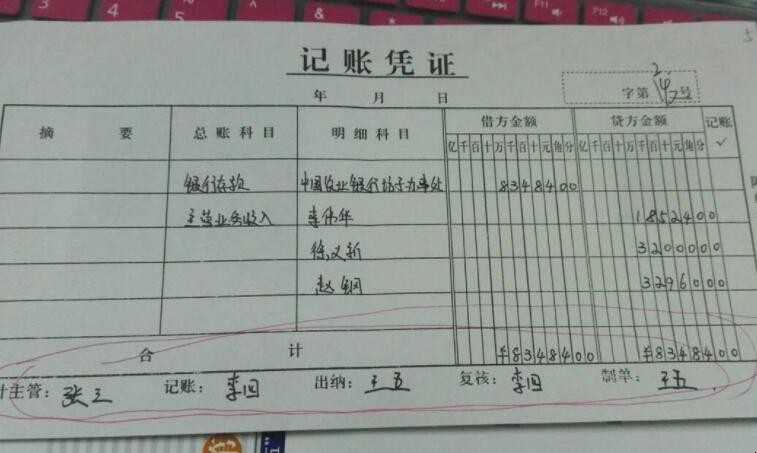 记账凭证
年 月 日
字第 号
摘 要 总账科目 明细科目 借方金额 贷方金额 记账
亿千百十万千百十元角分 亿千百十万千百十元角分 ✓
银行存款 中国农业银行 办事处 8348400
主营业务收入 李伟华 1852400
徐文新 3200000
赵钢 3296000
合 计 ¥8348400 ¥8348400
计主管: 张三 记账: 李四 出纳: 王五 复核: 李四 制单: 王五